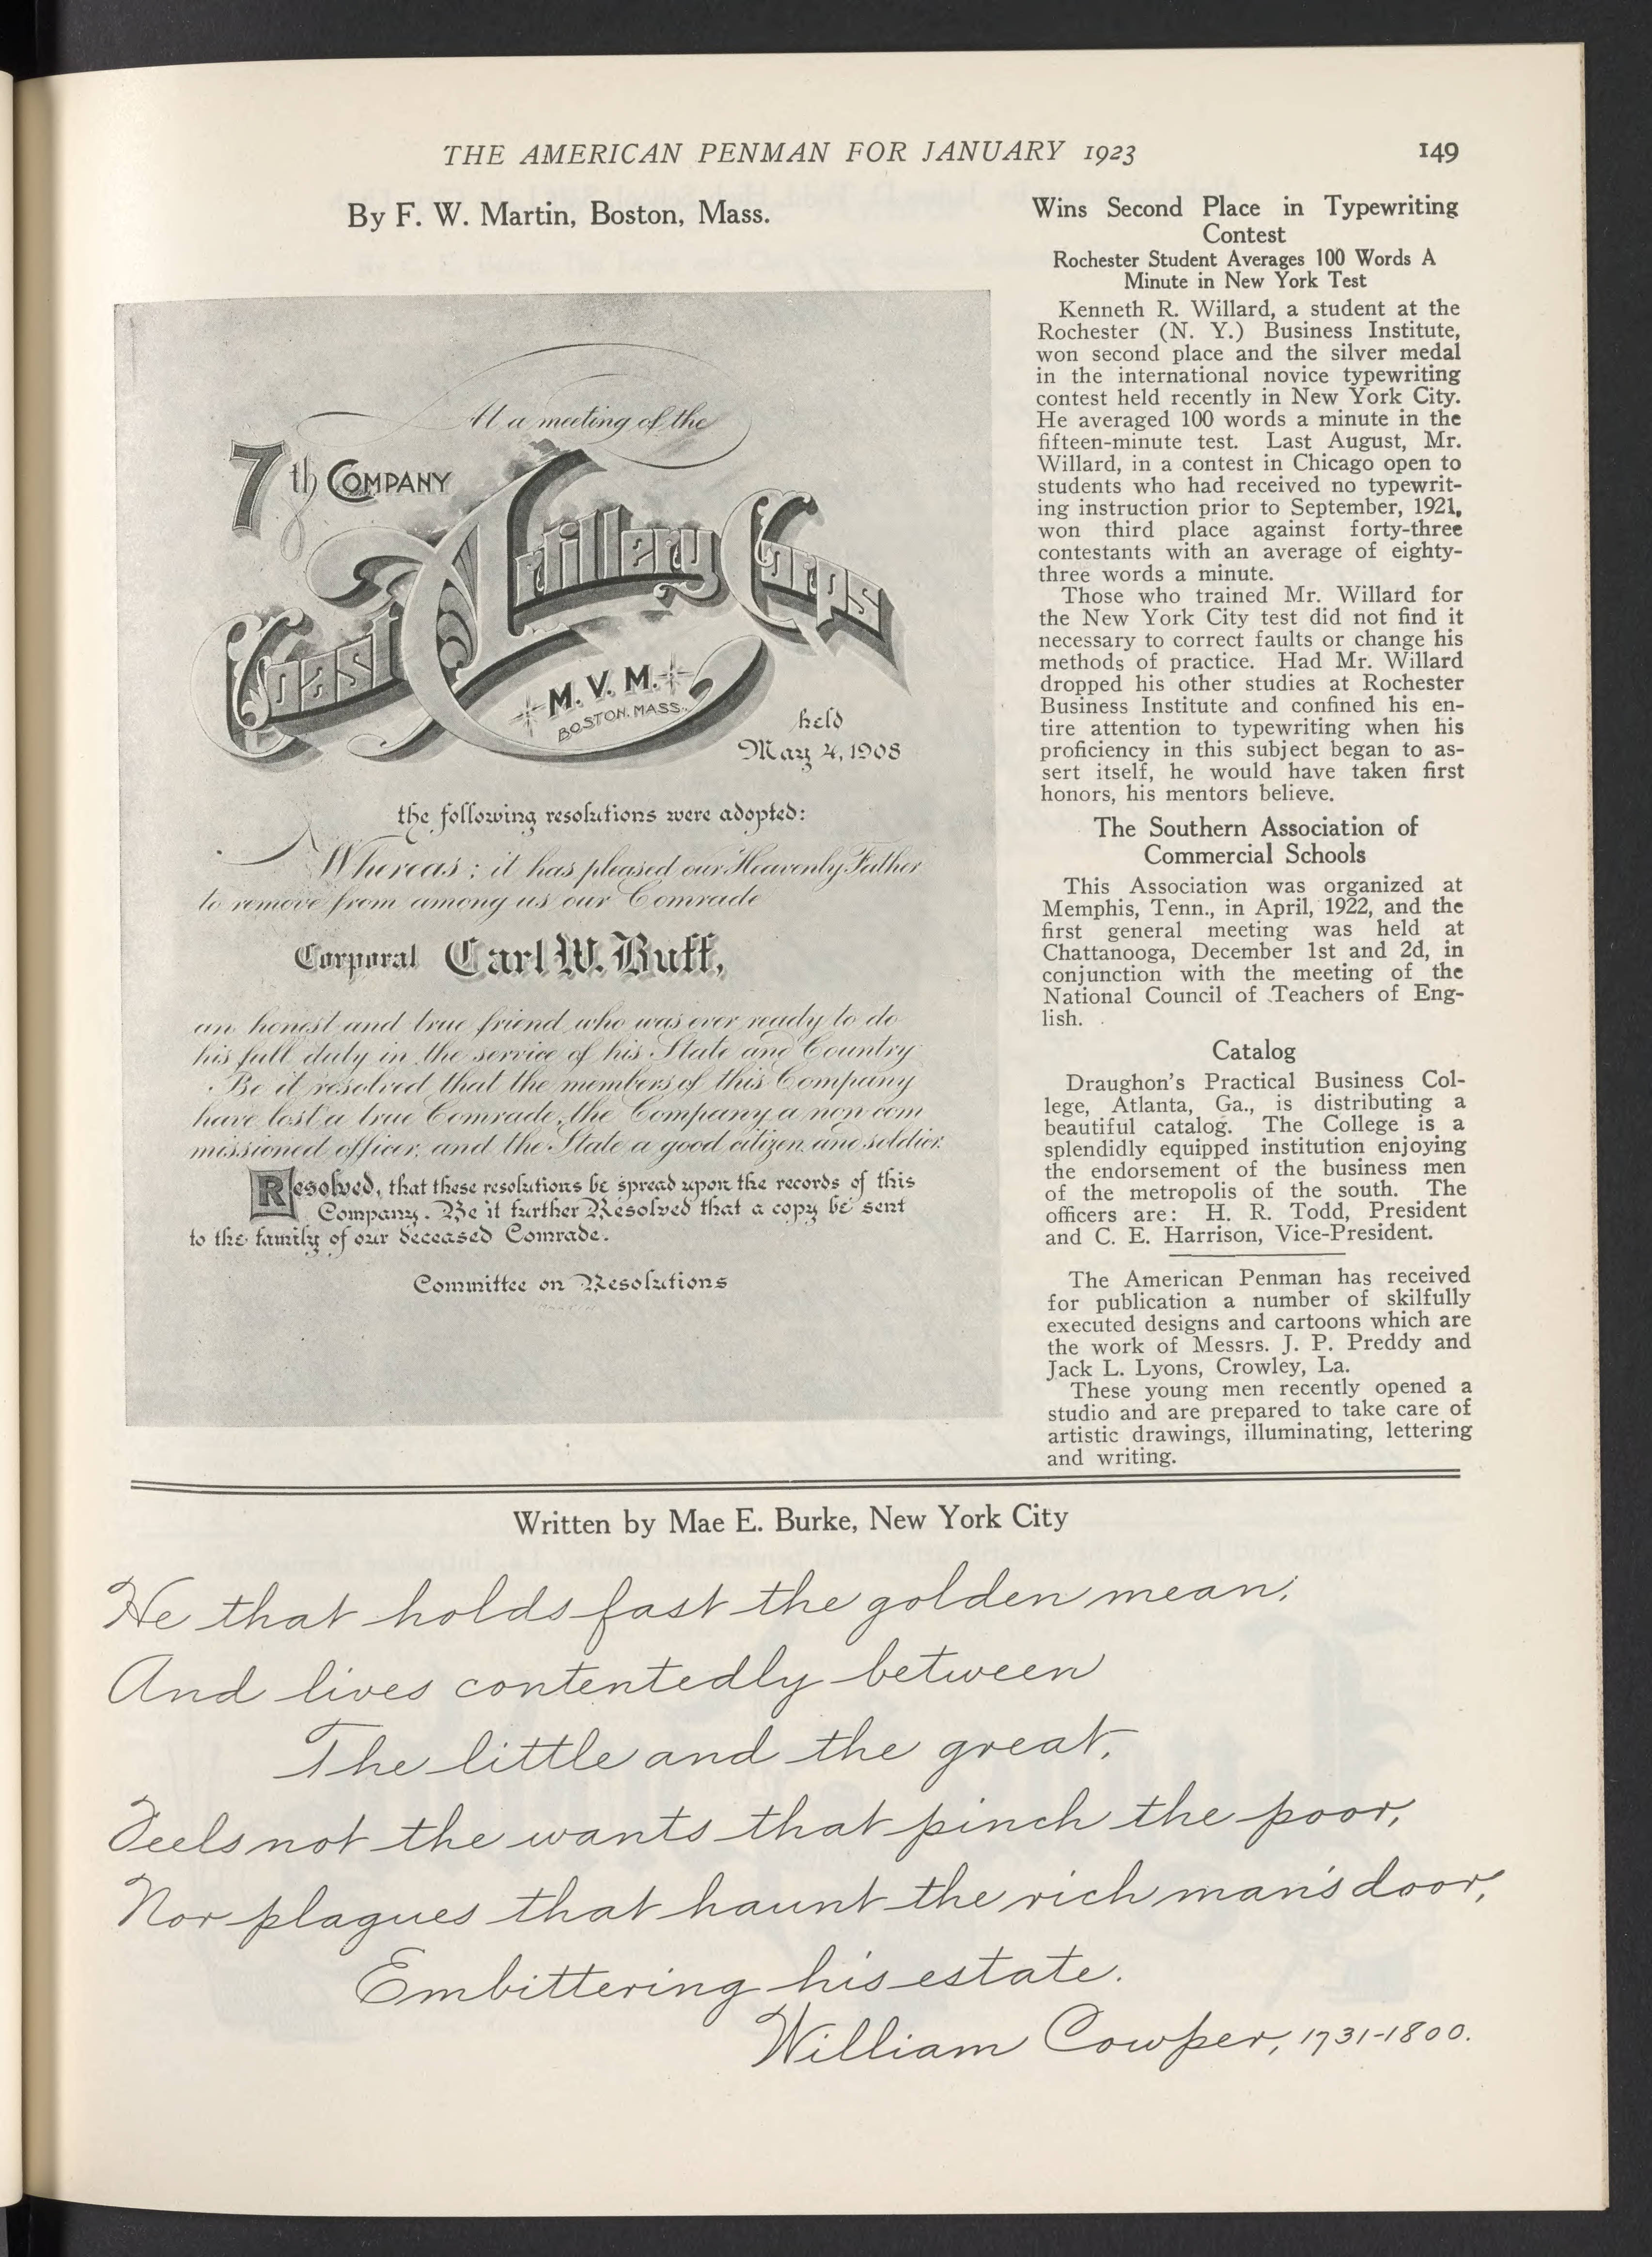 THE AMERICAN PENMAN FOR JANUARY 1923
149
By F. W. Martin, Boston, Mass.
At a meeting of the
7th COMPANY
Coast Artillery Corps
M. V. M.
BOSTON. MASS.
held
May 4, 1908
the following resolutions were adopted:
Whereas; it has pleased our Heavenly Father
to remove from among us our Comrade
Corporal Carl W. Buff,
an honest and true friend who was ever ready to do
his full duty in the service of his State and Country
Be it resolved that the members of this Company
have lost a true Comrade, the Company a non com
missioned officer, and the State a good citizen and soldier.
Resolved, that these resolutions be spread upon the records of this
Company. Be it further Resolved that a copy be sent
to the family of our deceased Comrade.
Committee on Resolutions
Wins Second Place in Typewriting
Contest
Rochester Student Averages 100 Words A
Minute in New York Test
Kenneth R. Willard, a student at the
Rochester (N. Y.) Business Institute,
won second place and the silver medal
in the international novice typewriting
contest held recently in New York City.
He averaged 100 words a minute in the
fifteen-minute test. Last August, Mr.
Willard, in a contest in Chicago open to
students who had received no typewrit-
ing instruction prior to September, 1921,
won third place against forty-three
contestants with an average of eighty-
three words a minute.
Those who trained Mr. Willard for
the New York City test did not find it
necessary to correct faults or change his
methods of practice. Had Mr. Willard
dropped his other studies at Rochester
Business Institute and confined his en-
tire attention to typewriting when his
proficiency in this subject began to as-
sert itself, he would have taken first
honors, his mentors believe.
The Southern Association of
Commercial Schools
This Association was organized at
Memphis, Tenn., in April, 1922, and the
first general meeting was held at
Chattanooga, December 1st and 2d, in
conjunction with the meeting of the
National Council of Teachers of Eng-
lish.
Catalog
Draughon's Practical Business Col-
lege, Atlanta, Ga., is distributing a
beautiful catalog. The College is a
splendidly equipped institution enjoying
the endorsement of the business men
of the metropolis of the south. The
officers are: H. R. Todd, President
and C. E. Harrison, Vice-President.
The American Penman has received
for publication a number of skilfully
executed designs and cartoons which are
the work of Messrs. J. P. Preddy and
Jack L. Lyons, Crowley, La.
These young men recently opened a
studio and are prepared to take care of
artistic drawings, illuminating, lettering
and writing.
Written by Mae E. Burke, New York City
He that holds fast the golden mean,
And lives contentedly between
The little and the great,
Feels not the wants that pinch the poor,
Nor plagues that haunt the rich man's door,
Embittering his estate.
William Cowper, 1731-1800.